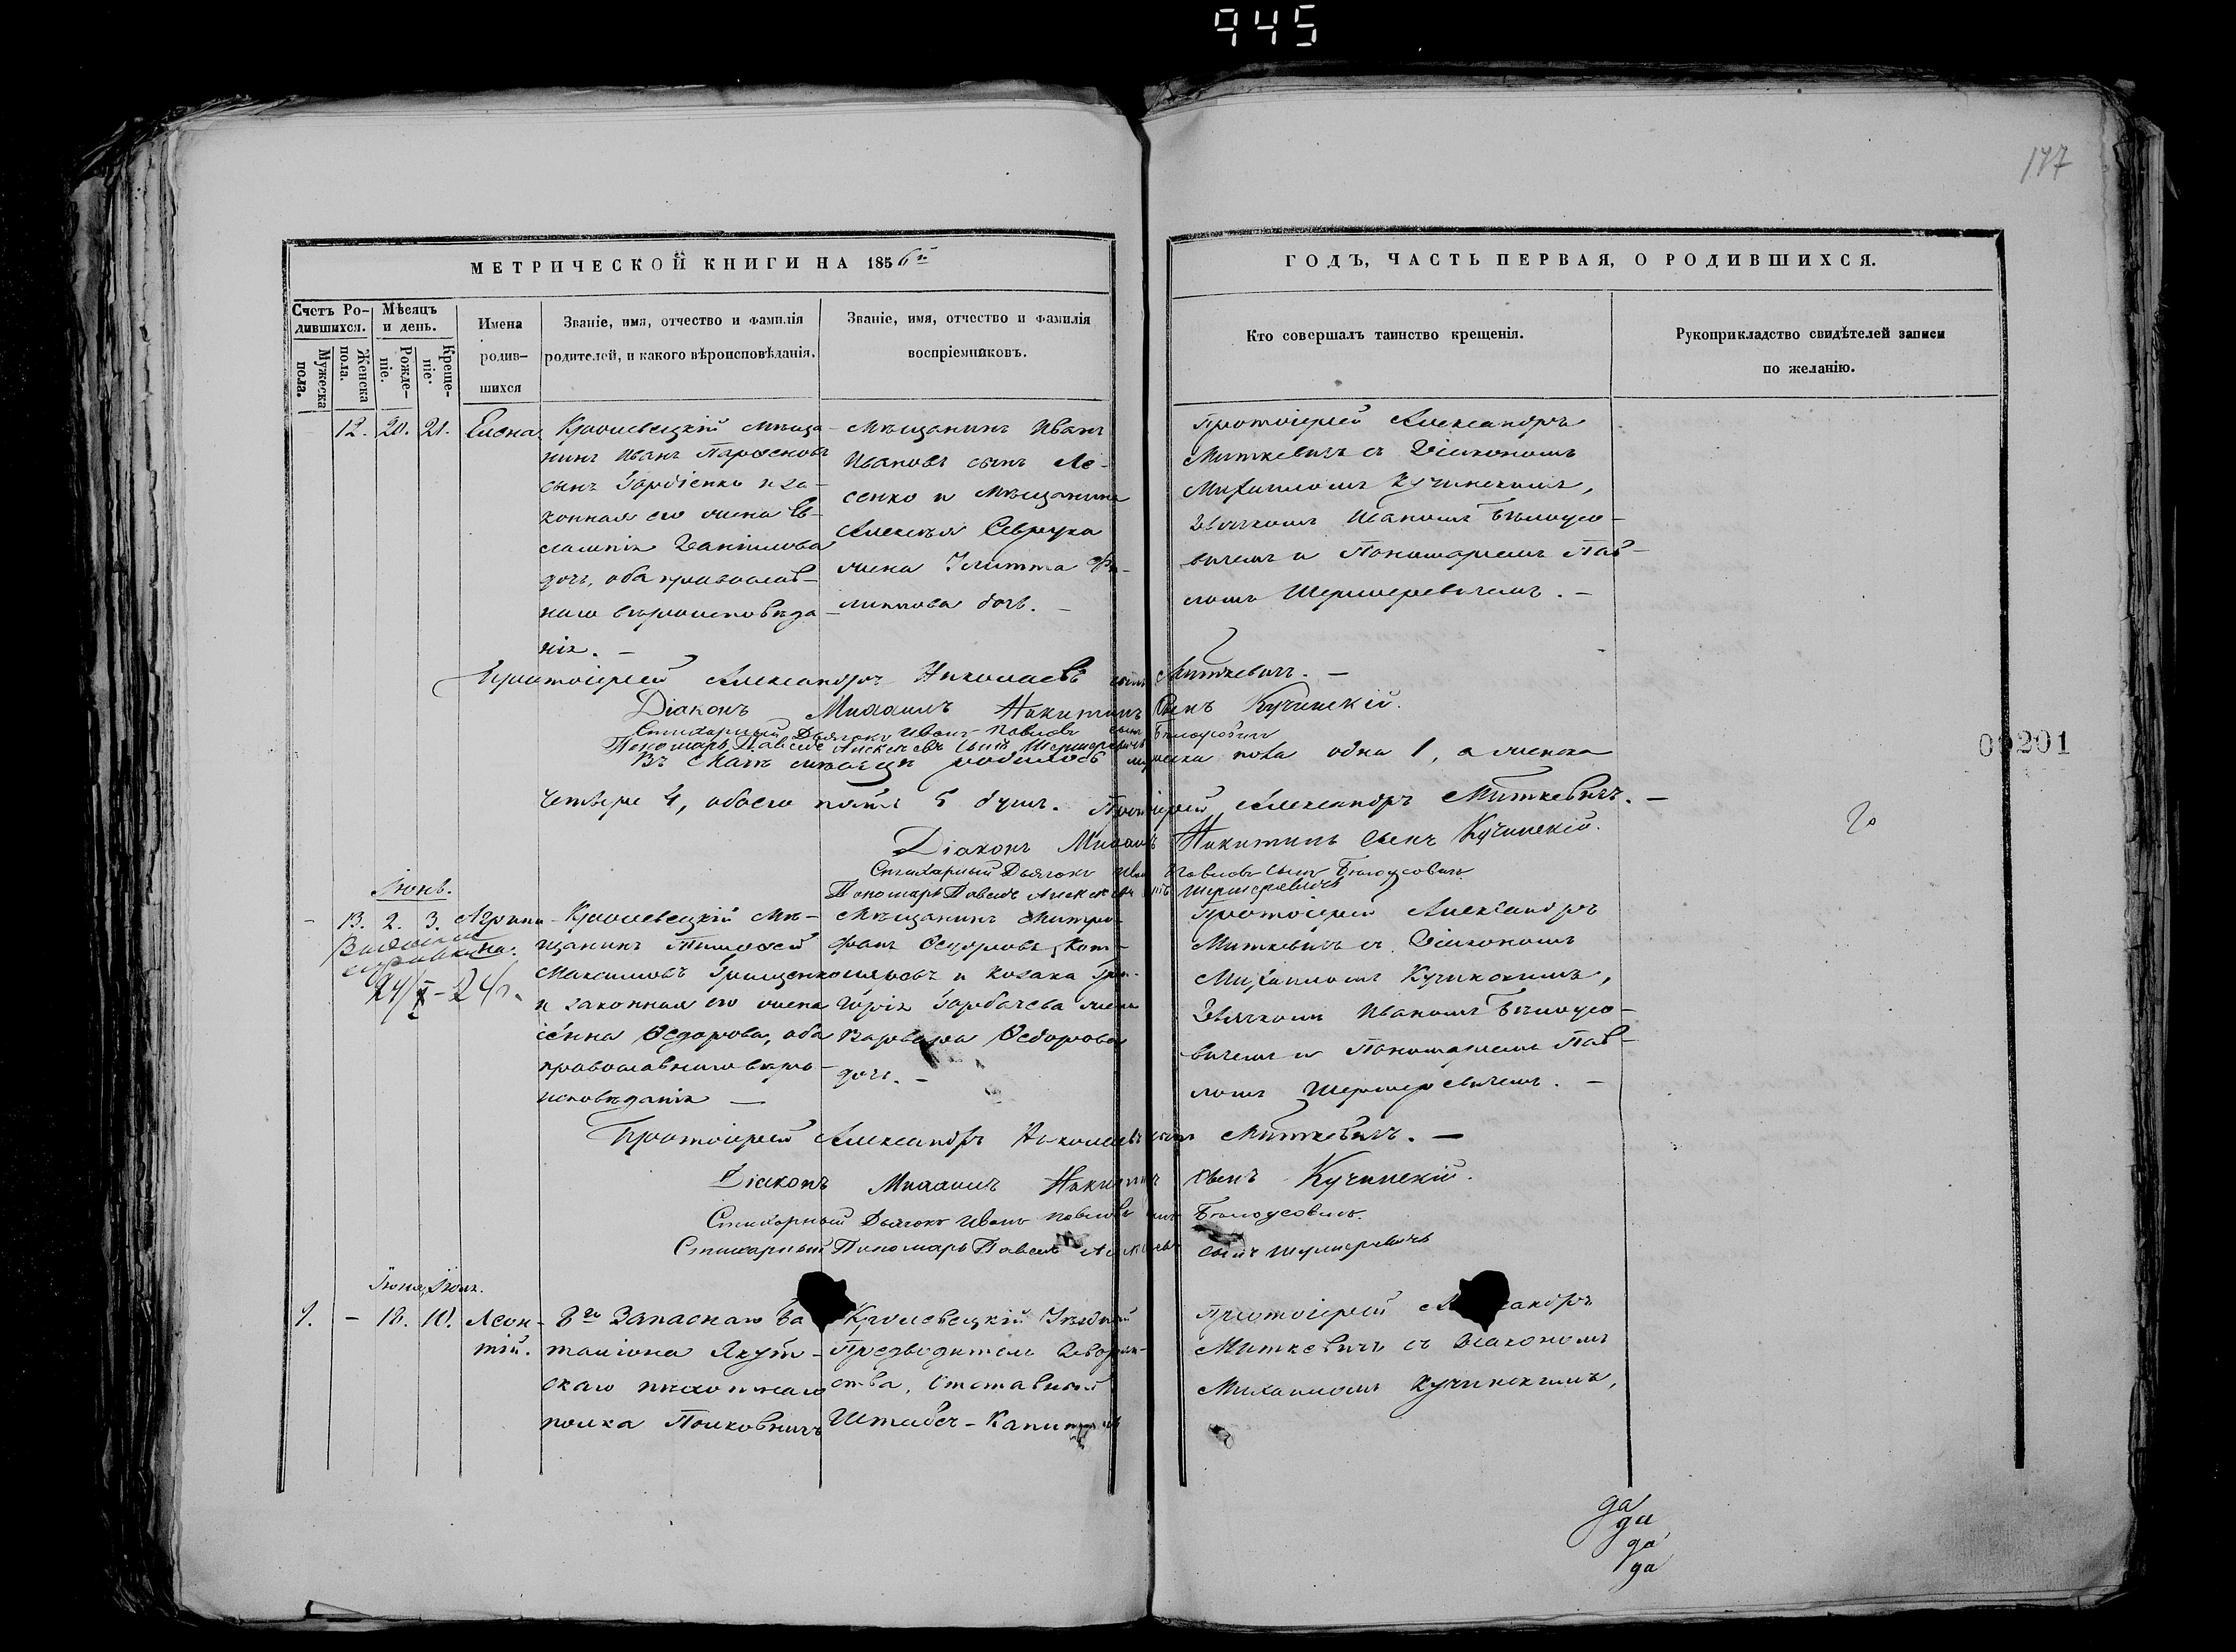 945
177
МЕТРИЧЕСКОЙ КНИГИ НА 1856й
ГОДЪ, ЧАСТЬ ПЕРВАЯ, О РОДИВШИХСЯ.
Счетъ Ро-
дившихся.
Мужеска
пола.
Женска
пола.
Мѣсяцъ
и день.
Рожде-
ніе.
Креще-
ніе.
Имена
родив-
шихся
Званіе, имя, отчество и фамилія
родителей, и какого вѣроисповѣданія.
Званіе, имя, отчество и фамилія
воспріемниковъ.
Кто совершалъ таинство крещенія.
Рукоприкладство свидѣтелей записи
по желанію.
12. 20. 21. Елена
Кролевецкій мѣща-
нинъ Иванъ Парфеновъ
сынъ Гордіенко и за-
конная его жена Ев-
Даніилова
дочь, оба православ-
наго вѣроисповѣда-
нія. —
Мѣщанинъ Иванъ
Ивановъ сынъ Ле-
сенко и мѣщанина
Алексѣя Севрука
жена Улитта Фи-
липпова дочь. —
Протоіерей Александръ
Миткевичъ съ Діакономъ
Михаиломъ Кучинскимъ,
Дьячкомъ Иваномъ Бѣлоусо-
вичемъ и Пономаремъ Пав-
ломъ Шермеревичемъ. —
Протоіерей Александръ Николаевъ сынъ Миткевичъ. —
Діаконъ Михаилъ Никитинъ Сынъ Кучинскій.
Стихарный Дьячокъ Иванъ Павловъ сынъ Белоусовичъ
Пономарь Павелъ Алексѣевъ Сынъ Шермеревичъ
Въ Маѣ мѣсяцѣ родилось мужеска пола одна 1, а женска
четыре 4, обоего пола 5 душъ. Протоіерей Александръ Миткевичъ. —
Діаконъ Михаилъ Никитинъ Сынъ Кучинскій.
Стихарный Дьячокъ Иванъ Павловъ Сынъ Белоусовичъ
Пономарь Павелъ Алексѣевъ сынъ Шермеревичъ
00201
Іюнь.
- 13. 2. 3. Агрипи-
на.
24/X-24г.
Кролевецкій Мѣ-
щанинъ Тимофей
Максимовъ Грищенко
и законная его жена
Ѳедорова, оба
православнаго вѣро-
исповѣданія —
Мѣщанинъ Митро-
фанъ Ѳедоровъ Кот-
ляровъ и Козака Гри-
горія Горбачева жена
Варвара Ѳедорова
дочь. —
Протоіерей Александръ
Миткевичъ съ Діакономъ
Михаиломъ Кучинскимъ,
Дьячкомъ Иваномъ Бѣлоусо-
вичемъ и Пономаремъ Пав-
ломъ Шермеревичемъ. —
Протоіерей Александръ Николаевъ сынъ Миткевичъ. —
Діаконъ Михаилъ Никитинъ сынъ Кучинскій.
Стихарный Дьячокъ Иванъ Павловъ сынъ Белоусовичъ.
Стихарный Пономарь Павелъ Алексѣевъ сынъ Шермеревичъ
Іюня, Іюля.
- 18. 10. Леон-
тій.
8го Запаснаго Ба
таліона Якут-
скаго пѣхотнаго
полка Полковникъ
Кролевецкій Уѣздный
Предводитель Дворян-
ства, Отставный
Штабсъ-Капитанъ
Протоіерей Александръ
Миткевичъ съ Діакономъ
Михаиломъ Кучинскимъ,
да
да
да
да